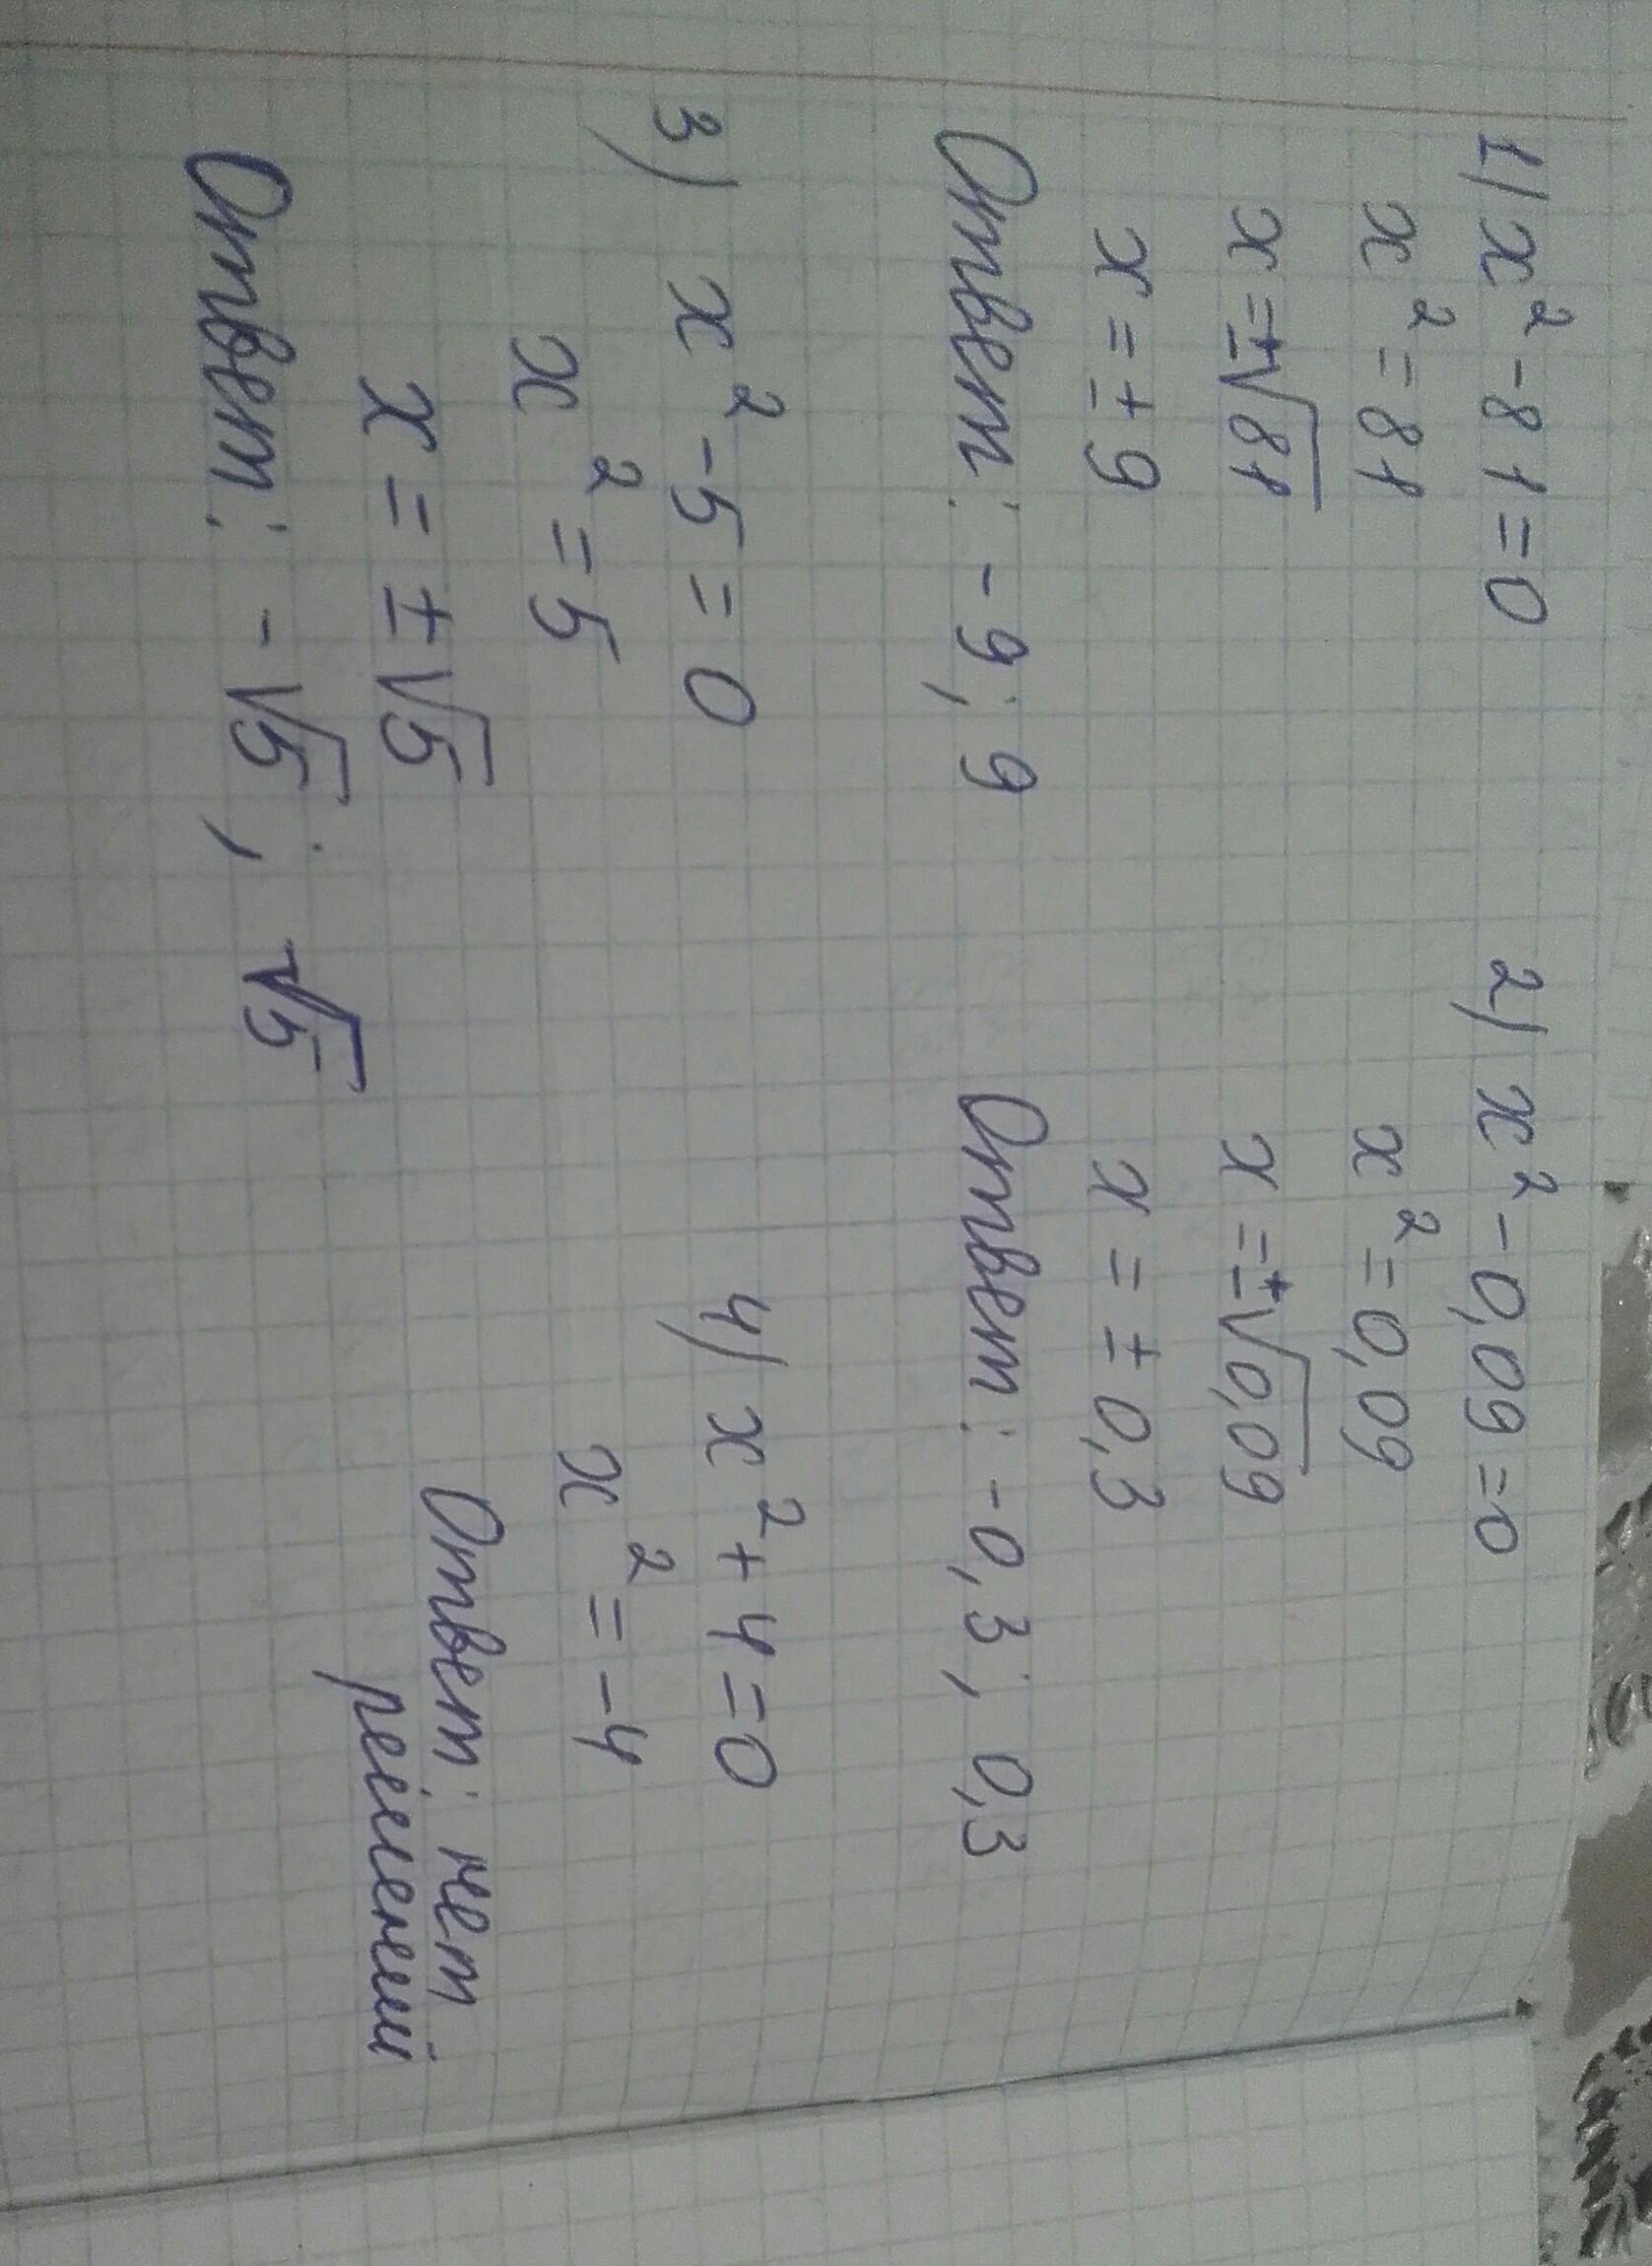 1) x² - 81 = 0
x² = 81
x = ±√81
x = ± 9
Ответ: - 9; 9
2) x² - 0,09 = 0
x² = 0,09
x = ±√0,09
x = ± 0,3
Ответ: -0,3; 0,3
3) x² - 5 = 0
x² = 5
x = ±√5
Ответ: -√5; √5
4) x² + 4 = 0
x² = -4
Ответ: нет
решений